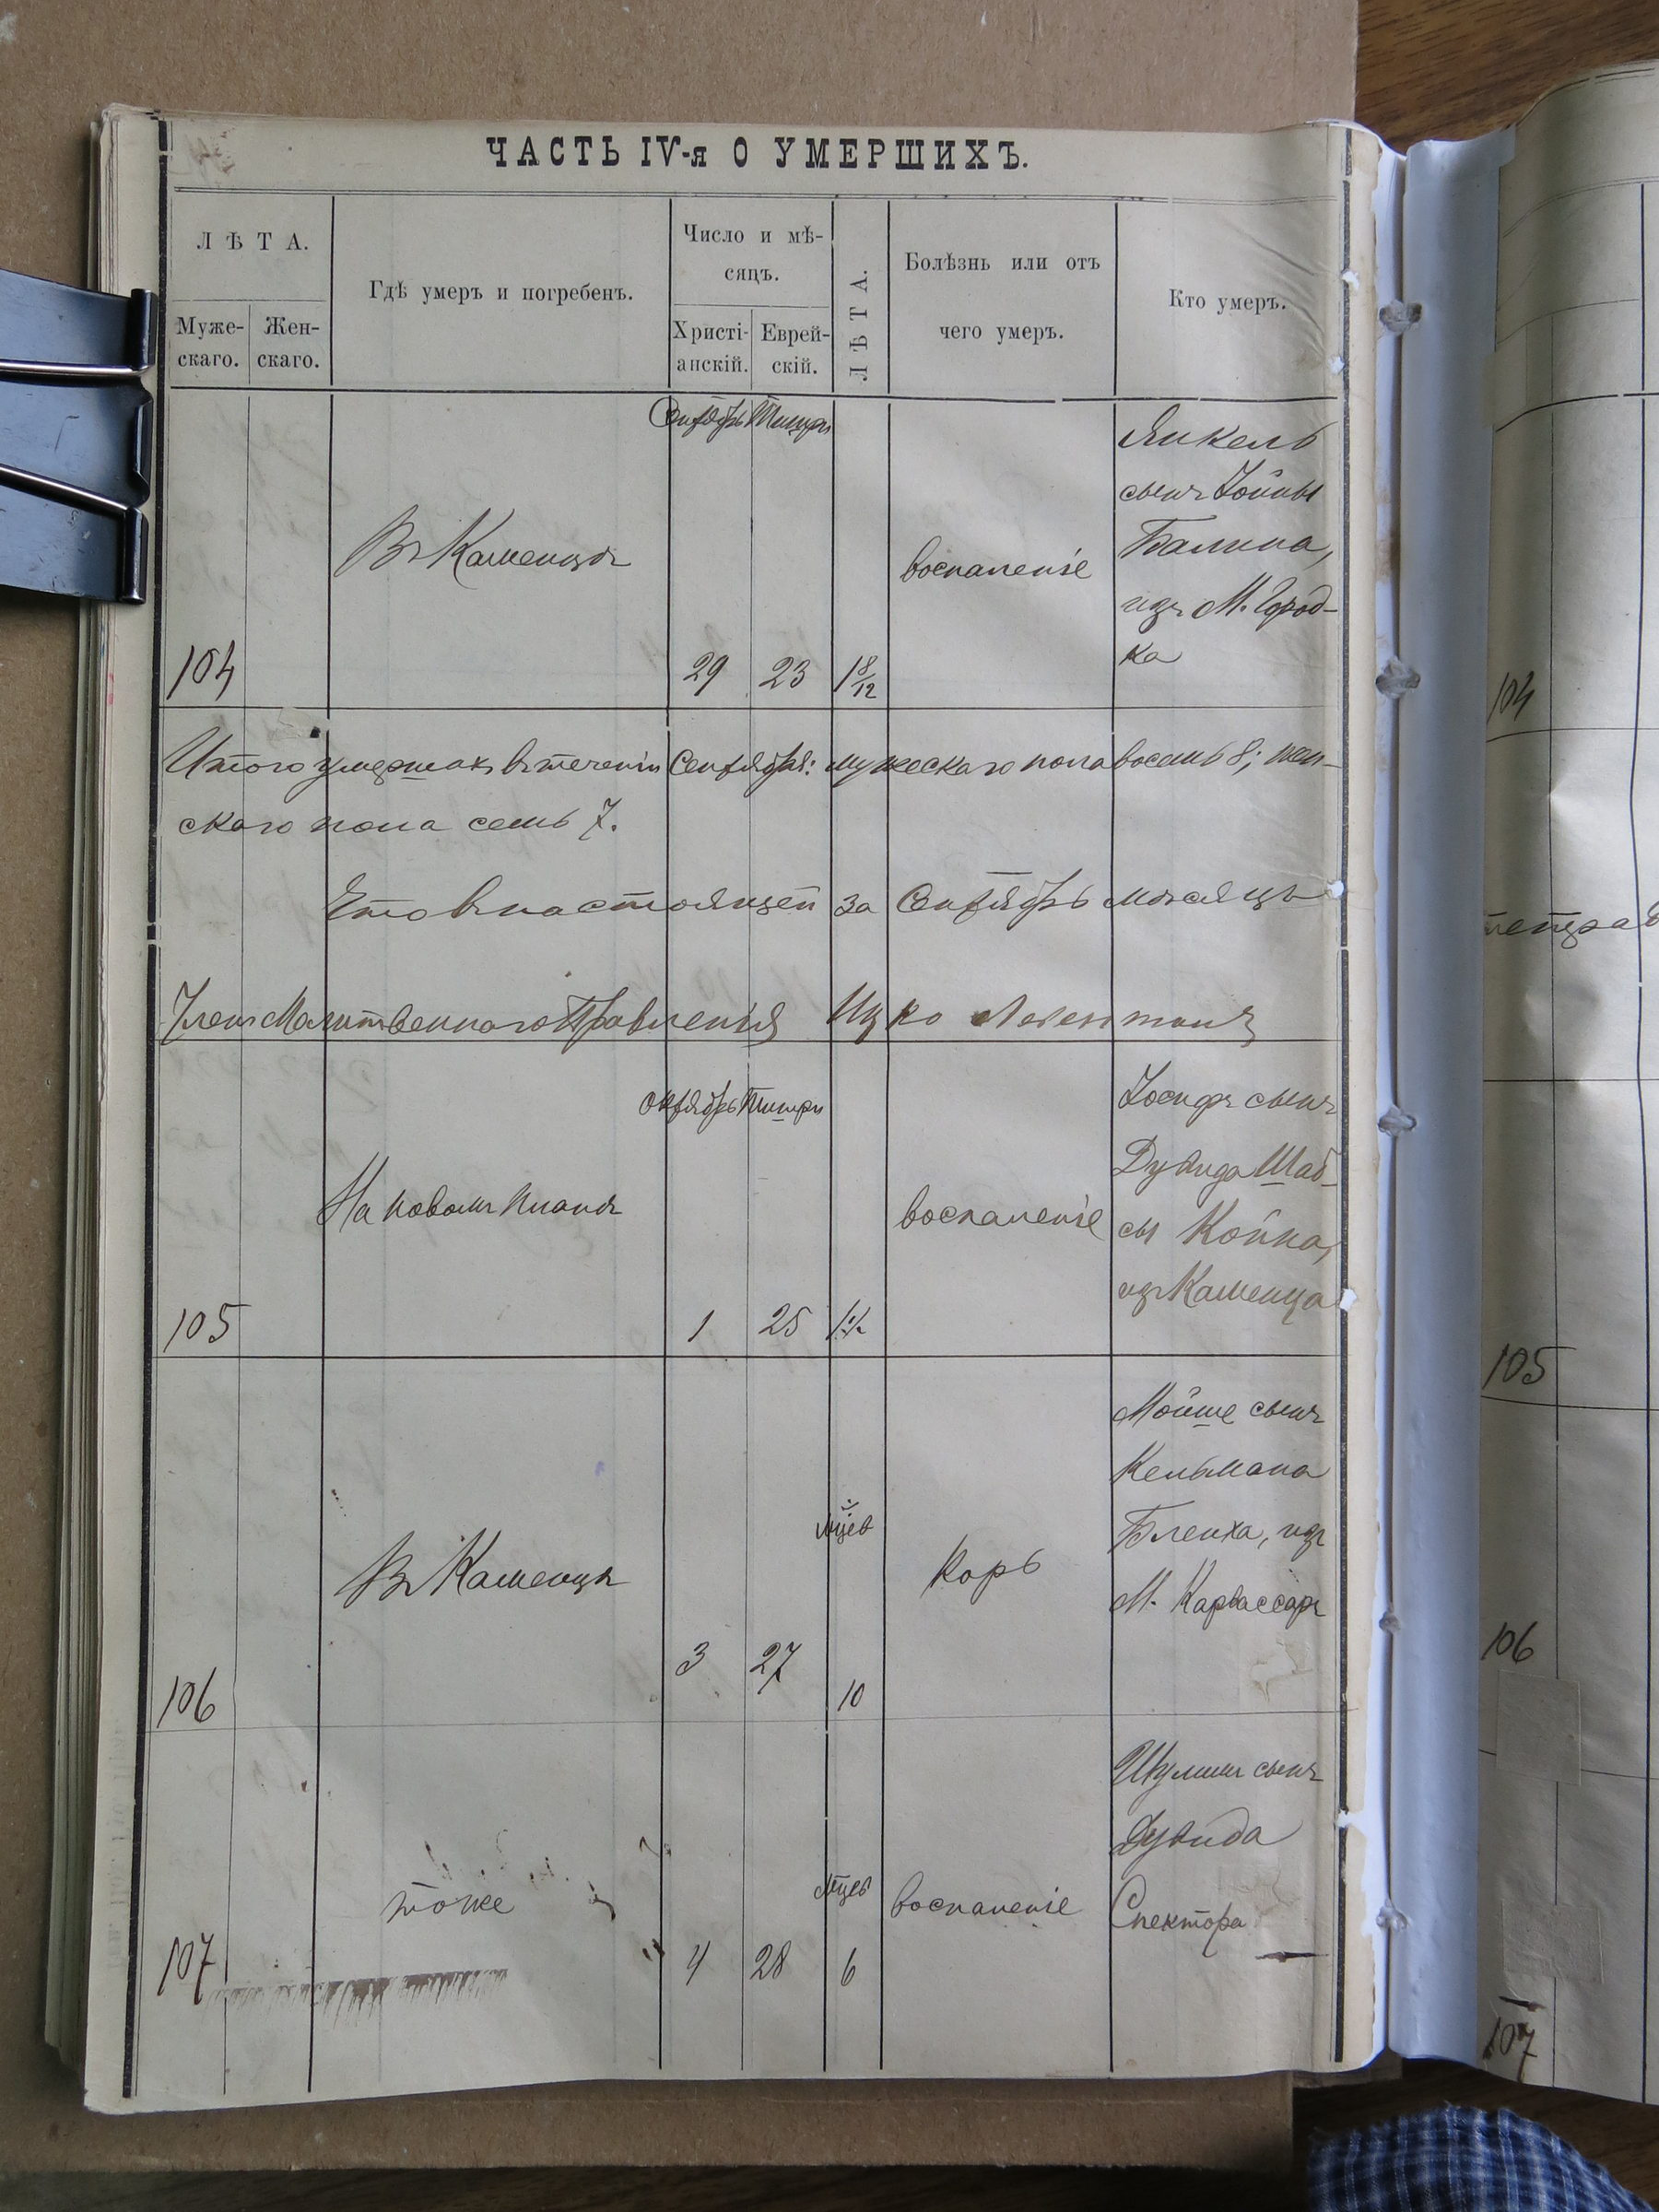 ЧАСТЬ IV-я О УМЕРШИХЪ.
ЛѢТА.
Муже-
скаго.
Жен-
скаго.
Гдѣ умеръ и погребенъ.
Число и мѣ-
сяцъ.
Христі-
анскій.
Еврей-
скій.
ЛѢТА.
Болѣзнь или отъ
чего умеръ.
Кто умеръ.
Сентябрь Тишри
104
Въ Каменцѣ
29
23
1 8/12
воспаленіе
Янкель
сынъ Іойны
Балина,
изъ М. Город-
ка
Итого умершихъ въ теченіи Сентября: мужескаго пола восемь 8; жен-
скаго пола семь 7.
Что въ настоящей за Сентябрь мѣсяцъ
Членъ Молитвеннаго Правленія Ицко
Октябрь Тишри
105
На новомъ планѣ
1
25
воспаленіе
Іосифъ сынъ
Дувида Шаб-
сы Койна,
изъ Каменца
106
Въ Каменцѣ
3
27
мцев
10
Корь
Мойше сынъ
Кельмана
Бленха, изъ
М. Карвассаръ
107
тоже
4
28
мцев
6
воспаленіе
Шулимъ сынъ
Дувида
Спектора
104
тетрад
105
106
107